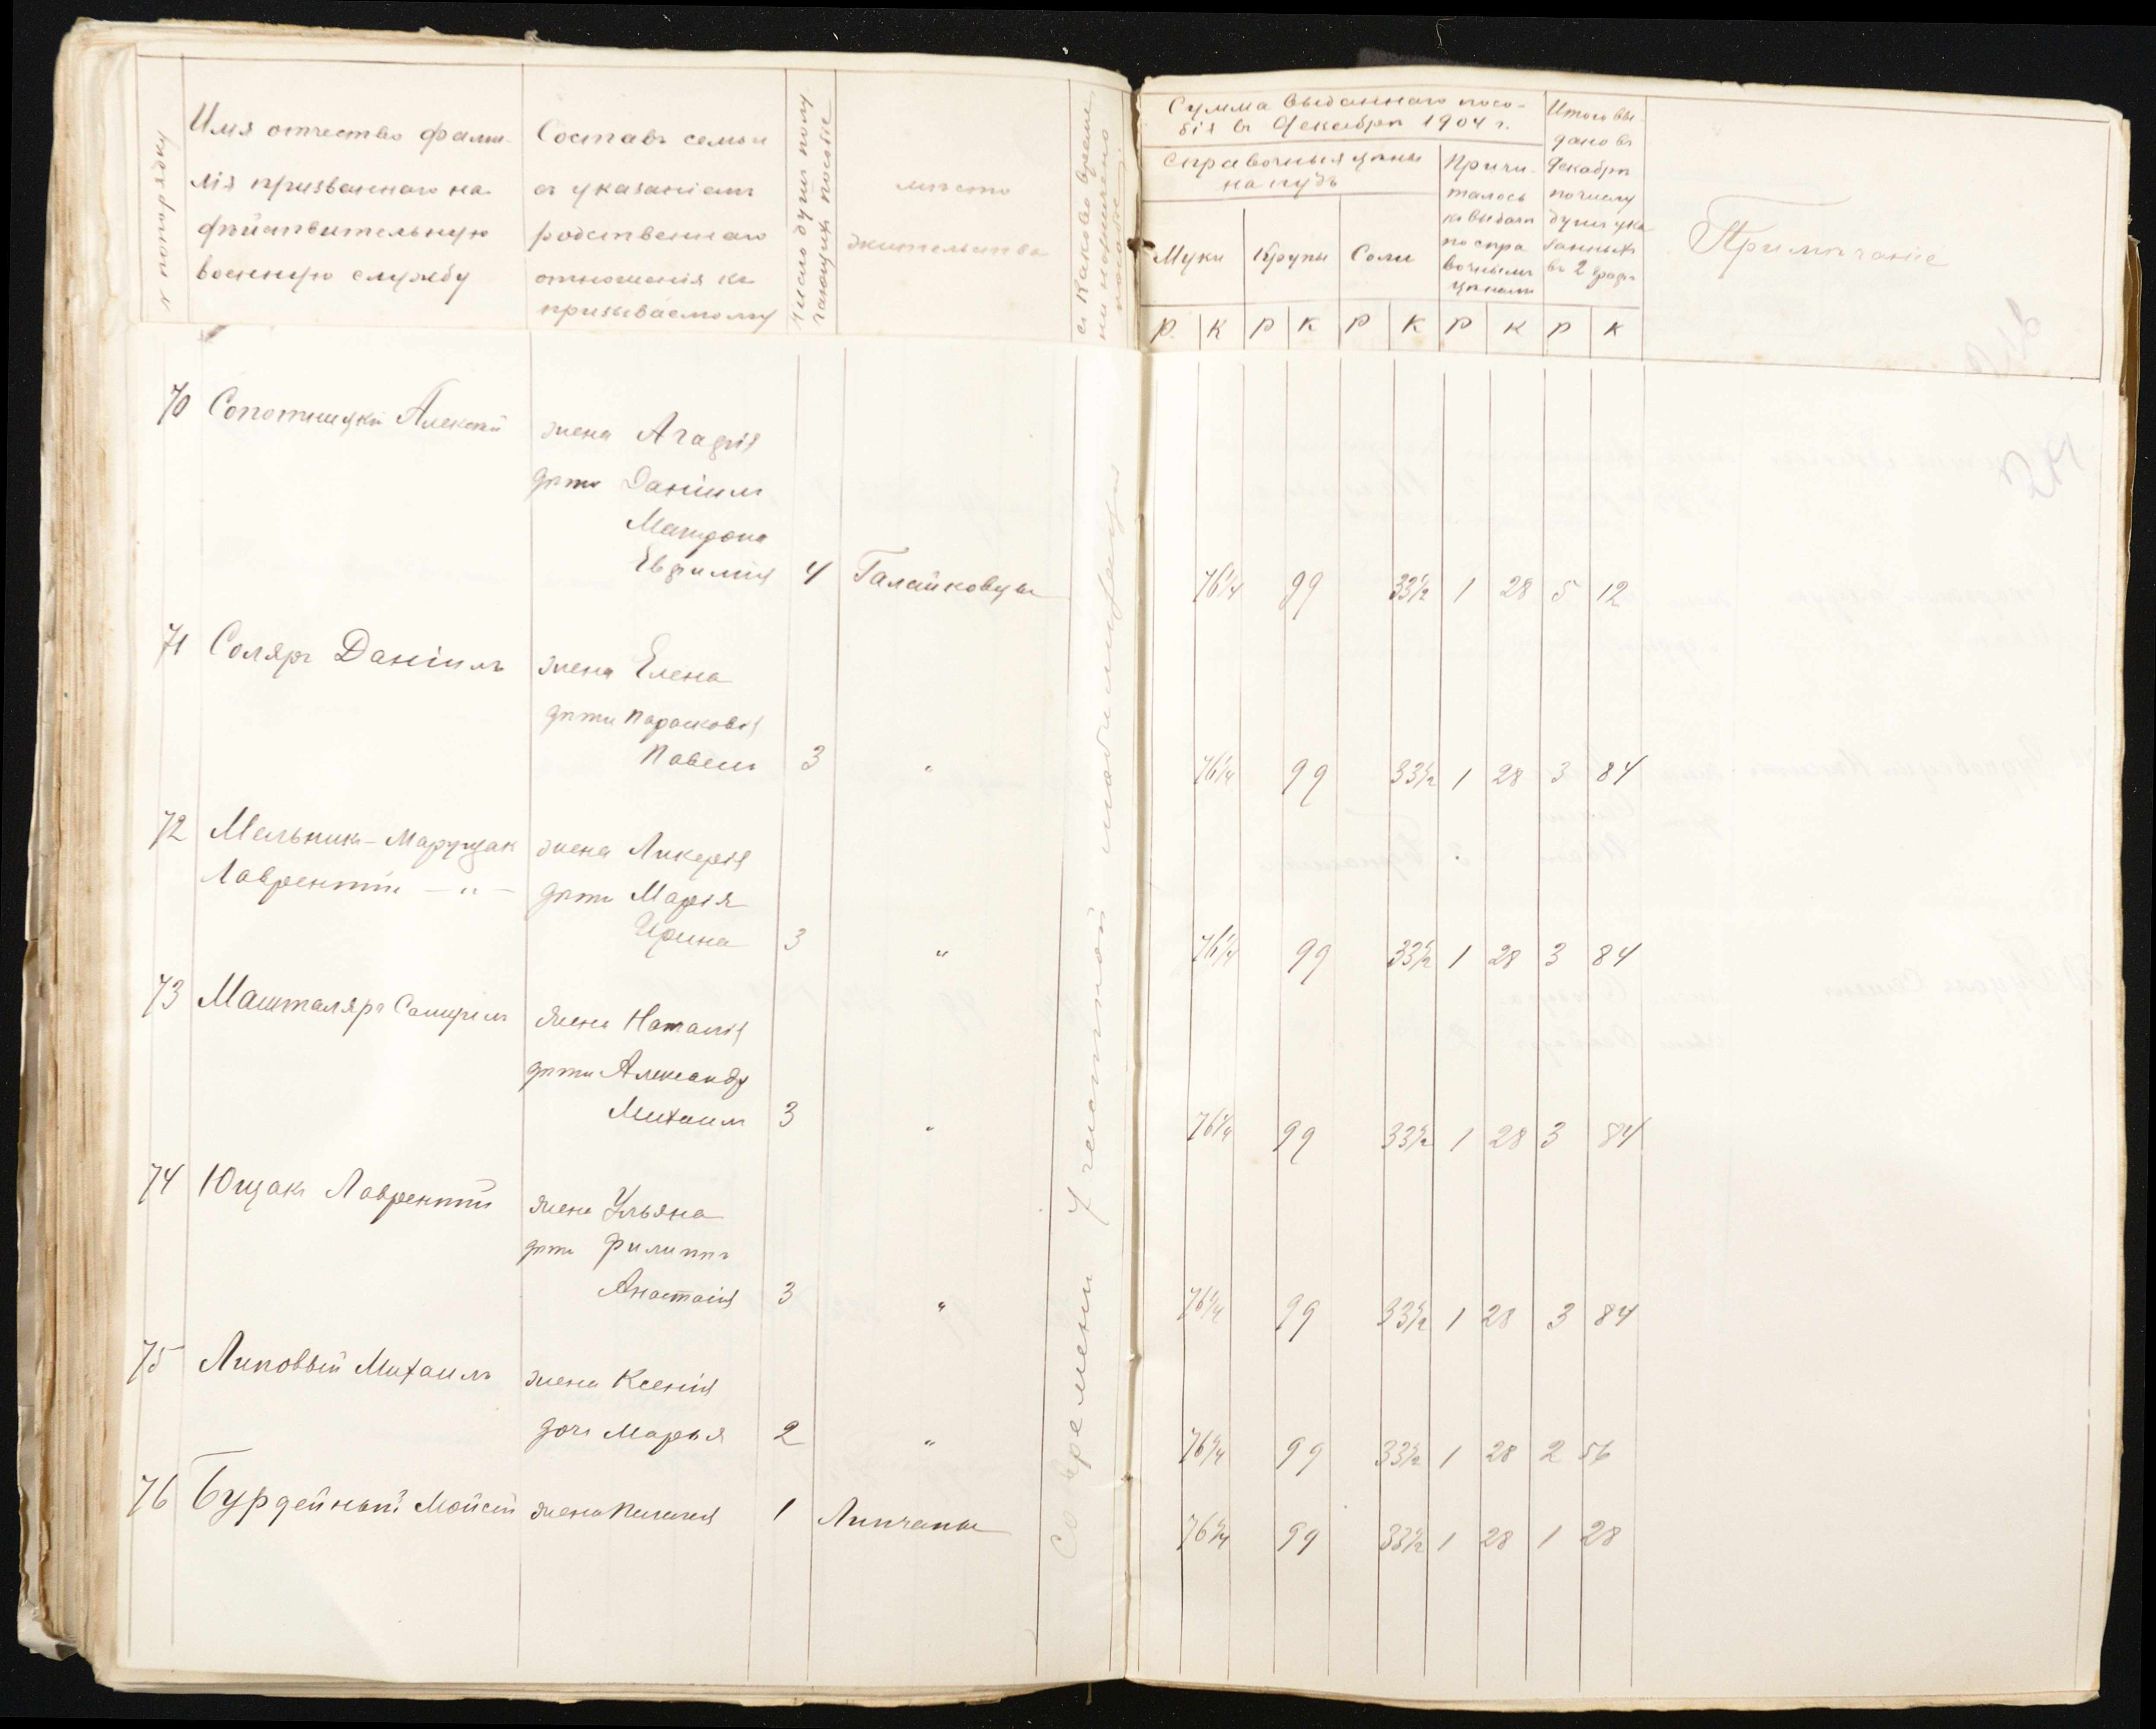 № по порядку
Имя отчество фами-
лія призваннаго на
дѣйствительную
военную службу
Составъ семьи
съ указаніемъ
родственнаго
отношенія къ
призываемому
Число душъ полу
чающихъ пособіе
мѣсто
жительства
съ какого време
ни назначено
пособіе
Сумма выданнаго посо-
бія въ Декабрѣ 1904 г.
Справочныя цѣны
на пудъ
Муки
Крупы
Соли
Причи-
талось
къ выдачѣ
по спра
вочнымъ
цѣнамъ
Итого вы-
дано въ
Декабрѣ
по числу
душъ ука
занныхъ
въ 2 графѣ
Примѣчаніе
Р. К Р К Р К Р К Р К
Со времени участной мобилизаціи
70 Алексѣй жена Агафія
дѣти Даніилъ
Евфимія 4 Галайковцы 76¼ 99 33½ 1 28 5 12
71 Соляръ Даніилъ жена Елена
дѣти Парасковія
Павелъ 3 " 76¼ 99 33½ 1 28 3 84
72 Мельникъ-Марущак жена Ликерія
Лаврентій — " — дѣти Марія
Ирина 3 " 76¼ 99 33½ 1 28 3 84
73 Машталяръ жена Наталія
дѣти Александръ
Михаилъ 3 " 76¼ 99 33½ 1 28 3 84
74 Ющакъ Лаврентій жена Ульяна
дѣти Филиппъ
Анастасія 3 " 76¼ 99 33½ 1 28 3 84
75 Липовый Михаилъ жена Ксенія
дочь Марья 2 " 76¼ 99 33½ 1 28 2 56
76 Бурдейный Мойсей жена Пелагея 1 Липчаны 76¼ 99 33½ 1 28 1 28